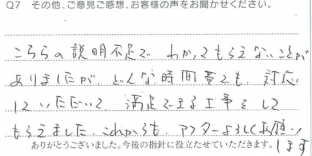 Q7 その他、ご意見ご感想、お客様の声をお聞かせください。
こちらの説明不足で わかってもらえないことが
ありましたが どんな時間帯でも 対応
していただいて 満足できる工事をして
もらえました。これからも アフターよろしくお願い
します
ありがとうございました。今後の指針に役立たせていただきます。